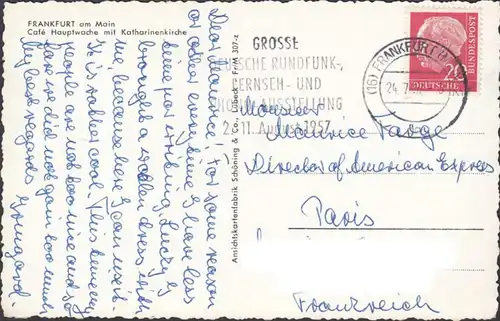 FRANKFURT am Main
Café Hauptwache mit Katharinenkirche
Dear Maurice! For some reason
or other anytime I have less
time for writing. Lucky I
brought a woolen dress with
me because here I can use it.
It is rather cool. This time my
people are not too nice and so
far we did not gain too much.
My best regards
Irmgard.
Ansichtskartenfabrik Schöning & Co., Lübeck · F/M 307-z
GROSSE
DEUTSCHE RUNDFUNK-,
FERNSEH- UND
PHONO-AUSSTELLUNG
2.-11. August 1957
(16) FRANKFURT (M
24.7.
DEUTSCHE
BUNDESPOST
20
Monsieur
Maurice
Director of American Express
Paris
Frankreich